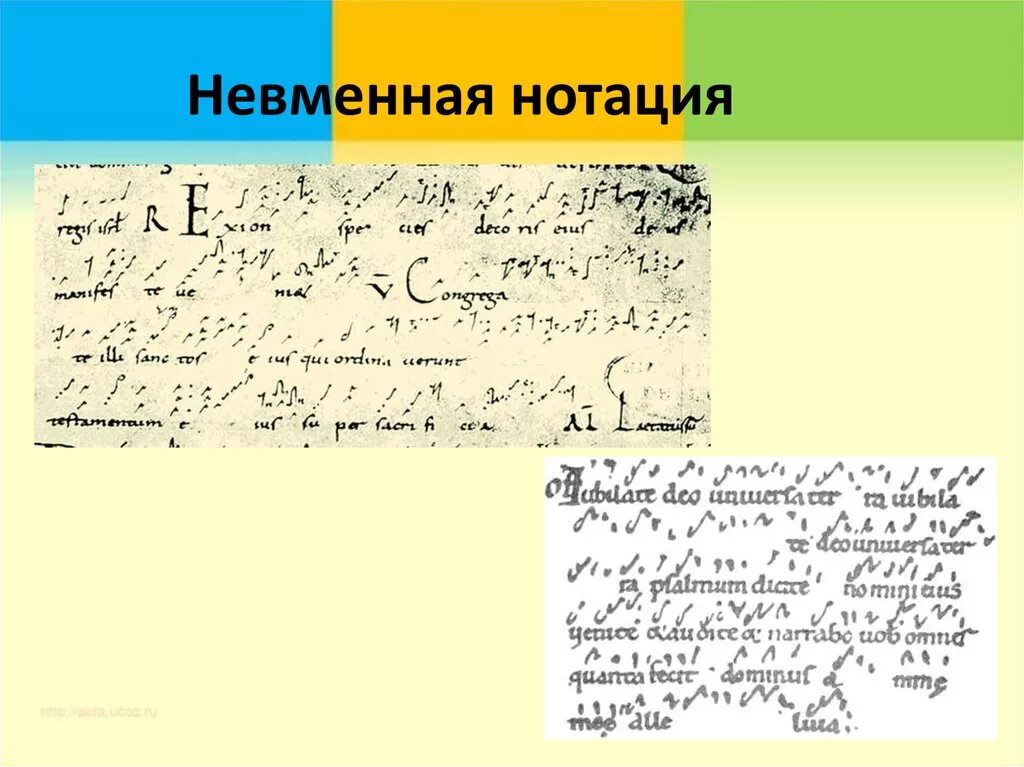 Невменная нотация
regis isrl R Exion spe cies deco ris eius de us
manifes te ue ni& V Congrega
te illi sanc tos e ius qui ordina uerunt
testamentum e ius su per sacri fi cia. Al L
Iubilate deo uniuersa ter ra iubila
te deo uniuersa ter
ra psalmum dicite nomini eius
uenite & audite & narrabo uob omnes
quanta fecit dominus a nimę
meę alle luia.
http://aida.ucoz.ru